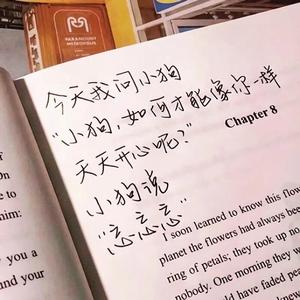 今天我问小狗
"小狗,如何才能像你一样
天天开心呢?"
小狗说
"忘忘忘"
Chapter 8
I soon learned to know this flo
planet the flowers had always been
ring of petals; they took up no
nobody. One morning they w
ould have faded peac
him:
you a
and your